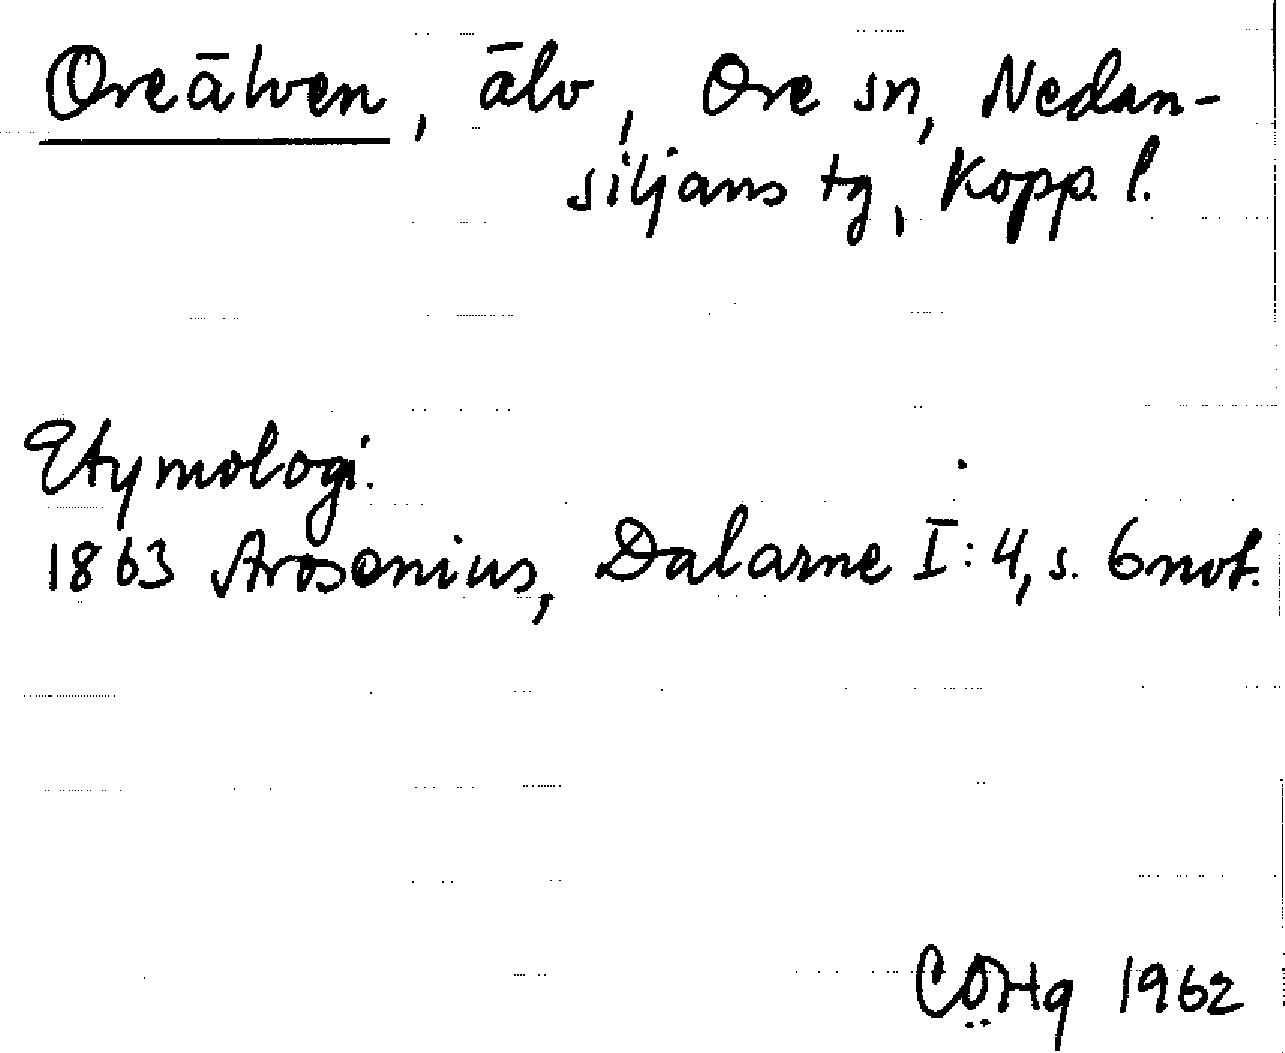 Oreälven, älv, Ore sn, Nedan-
siljans tg, Kopp. l.
Etymologi.
1863 Arosenius, Dalarne I: 4, s. 6 not.
COHg 1962